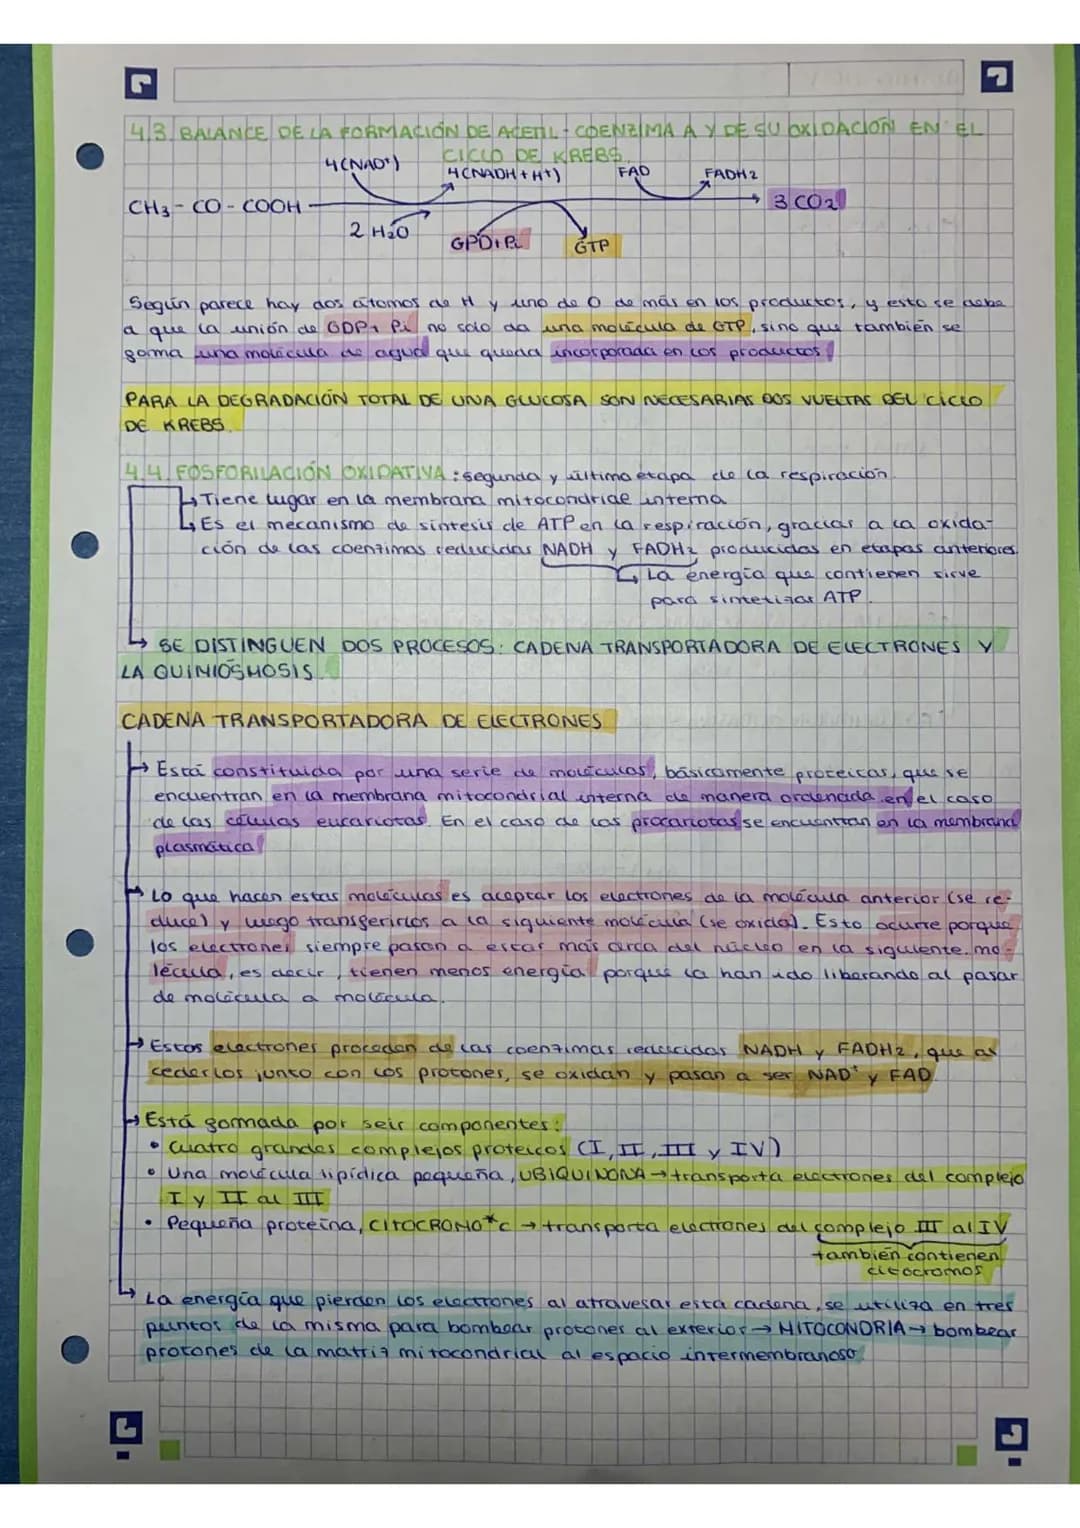 4.3. BALANCE DE LA FORMACIÓN DE ACETIL-COENZIMA A Y DE SU OXIDACIÓN EN EL
CICLO DE KREBS.
4(NAD⁺) 4(NADH+H⁺) FAD FADH2
CH3-CO-COOH 3 CO2
2 H2O GPD+Pi GTP
Según parece hay dos átomos de H y uno de O de más en los productos, y esto se debe
a que la unión de GDP+ Pi no solo da una molécula de GTP, sino que también se
forma una molécula de agua que queda incorporada en los productos.
PARA LA DEGRADACIÓN TOTAL DE UNA GLUCOSA SON NECESARIAS DOS VUELTAS DEL CICLO
DE KREBS.
4.4. FOSFORILACIÓN OXIDATIVA: segunda y última etapa de la respiración.
↳ Tiene lugar en la membrana mitocondrial interna
↳ Es el mecanismo de síntesis de ATP en la respiración, gracias a la oxida-
ción de las coenzimas reducidas NADH y FADH2 producidas en etapas anteriores.
↳ La energía que contienen sirve
para sintetizar ATP.
→ SE DISTINGUEN DOS PROCESOS: CADENA TRANSPORTADORA DE ELECTRONES Y
LA QUIMIÓSMOSIS.
CADENA TRANSPORTADORA DE ELECTRONES
→ Está constituida por una serie de moléculas, básicamente proteicas, que se
encuentran en la membrana mitocondrial interna de manera ordenada en el caso
de las células eucariotas. En el caso de las procariotas se encuentran en la membrana
plasmática.
→ Lo que hacen estas moléculas es aceptar los electrones de la molécula anterior (se re-
duce) y luego transferirlos a la siguiente molécula (se oxida). Esto ocurre porque
los electrones siempre pasan a estar más cerca del núcleo en la siguiente mo-
lécula, es decir, tienen menos energía porque la han ido liberando al pasar
de molécula a molécula.
→ Estos electrones proceden de las coenzimas reducidas NADH y FADH2, que al
cederlos junto con los protones, se oxidan y pasan a ser NAD⁺ y FAD.
→ Está formada por seis componentes:
• Cuatro grandes complejos proteicos (I, II, III y IV)
• Una molécula lipídica pequeña, UBIQUINONA → transporta electrones del complejo
I y II al III
• Pequeña proteína, CITOCROMO*c → transporta electrones del complejo III al IV
también contienen
citocromos
→ La energía que pierden los electrones al atravesar esta cadena, se utiliza en tres
puntos de la misma para bombear protones al exterior → MITOCONDRIA → bombear
protones de la matriz mitocondrial al espacio intermembranoso.